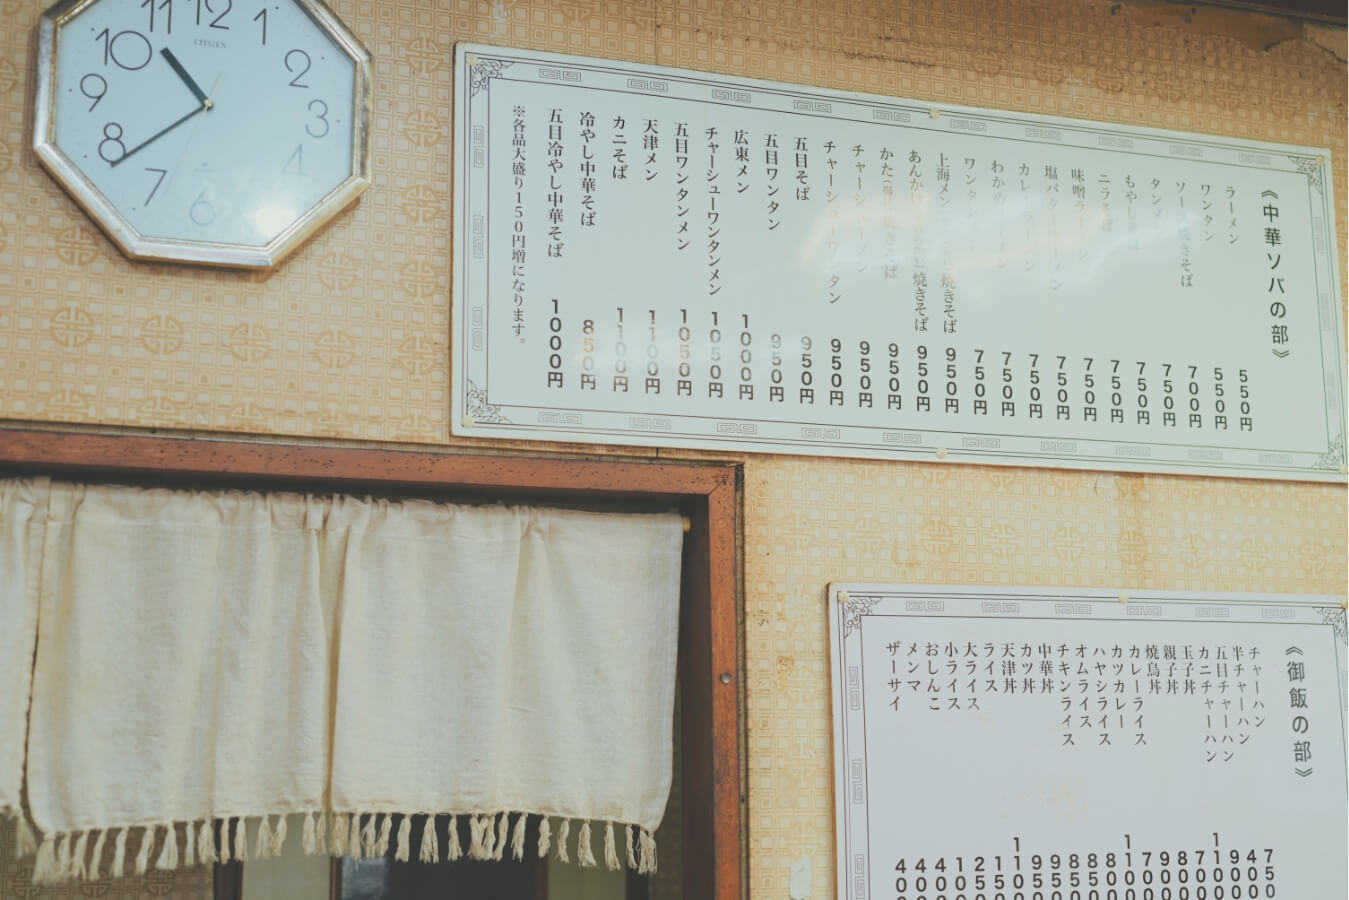 11 12 1
10 2
9 3
8 4
7 6
CITIZEN
《中華ソバの部》
ラーメン 550円
ワンタン 550円
ソース焼きそば 700円
タンメン 750円
もやしそば 750円
ニラそば 750円
味噌ラーメン 750円
塩バターラーメン 750円
カレーラーメン 750円
わかめラーメン 750円
ワンタンメン 750円
上海メン 焼きそば 950円
あんかけ 焼きそば 950円
かた 焼きそば 950円
チャーシューメン 950円
チャーシューワンタン 950円
五目そば 950円
五目ワンタン 950円
広東メン 1000円
チャーシューワンタンメン 1050円
五目ワンタンメン 1050円
天津メン 1100円
カニそば 1100円
冷やし中華そば 850円
五目冷やし中華そば 1000円
※各品大盛り150円増になります。
《御飯の部》
チャーハン
半チャーハン
五目チャーハン
カニチャーハン
玉子丼
親子丼
焼鳥丼
カレーライス
カツカレー
ハヤシライス
オムライス
チキンライス
中華丼
カツ丼
天津丼
ライス
大ライス
小ライス
おしんこ
メンマ
ザーサイ